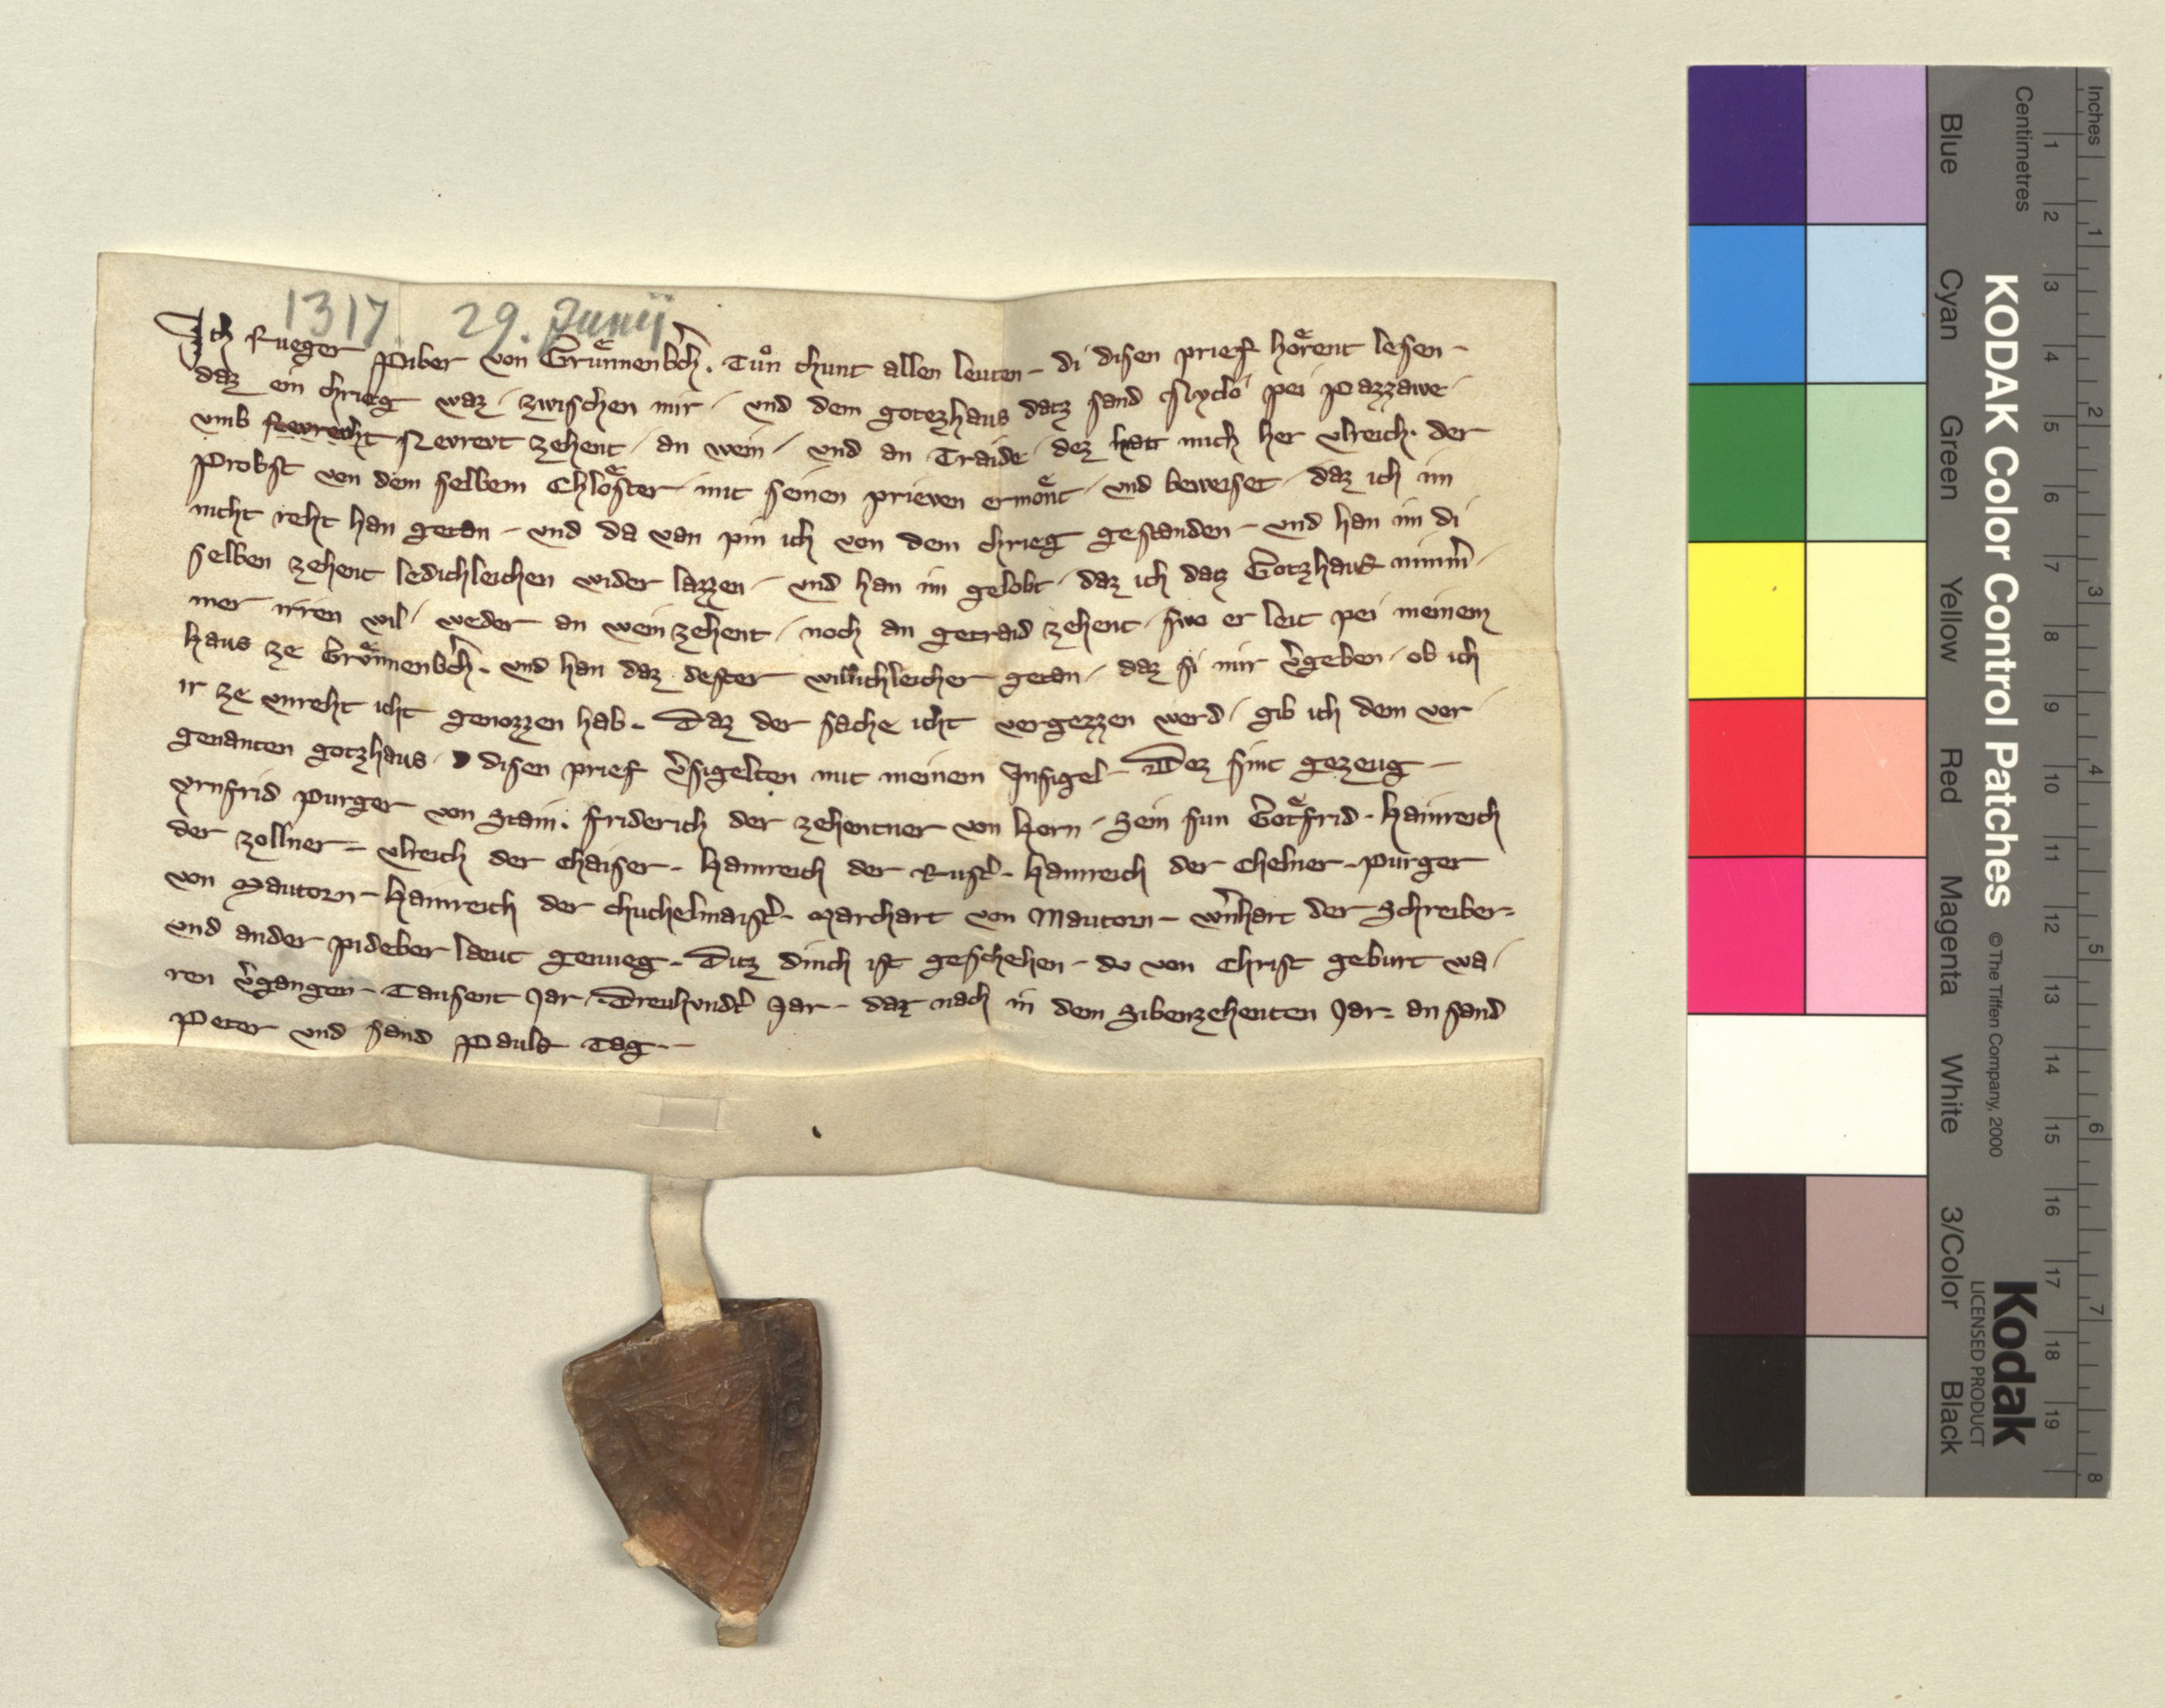 1317 29. Junÿ
Ich Rueger Piber von Gruͤnnenb̄ch. Tuͦn chunt allen leuten – di disen prief hoͤrent lesen –
daz ein chrieg waz / zwischen mir / vnd dem gotezhaus datz sand Nyclo pei Pazzawe /
vmb Nevrevt zehent / an wein / vnd an Traide / dez hat mich her vlreich. der
Probst von dem selbem Chloͤster / mit seinen prieven ermoͤnt / vnd beweiset / daz ich im
nicht reht han getan – vnd da van pin ich von dem chrieg gestanden – vnd han im di
selben zehent ledichleichen wider lazzen / vnd han im gelobt / daz ich datz Gotzhaus nimm̄ /
mer irren wil / weder an wein zehent / noch an getraid zehent / swo er leit pei meinem
haus ze Gruͤnnenb̄ch. vnd han daz dester willichleicher getan / daz si mir v̄geben / ob ich
ir ze vnreht icht genozzen hab. Daz der sache icht vergezzen werd / gib ich dem vor /
genanten gotzhaus / disen prief v̄sigelten mit meinem Insigel – Dez sint gezeug –
Yrnfrid purger von Stain. friderich der zehentner von kern / Sein sun Goͤtfrid – Hainreich
der zollner = vlreich der Chaiser – Hainreich der Rust̄ – Hainreich der Chelner – purger
von Mautorn – Hainreich der chuchelmaist̄ – Marchart von Mautorn – w̄nhart der Schreiber =
vnd ander pideber laeut genueg – Ditz dinch ist geschehen – do von Christ geburt wa /
ren v̄gangen – Tausent Jar / Dreuhundt̄ Jar – dar nach in dem Sibenzehenten Jar = an sand
Peter vnd sand Pauls Tag. –
Inches
Centimetres
1 2 3 4 5 6 7 8
1 2 3 4 5 6 7 8 9 10 11 12 13 14 15 16 17 18 19
KODAK Color Control Patches
© The Tiffen Company, 2000
Kodak
LICENSED PRODUCT
Blue
Cyan
Green
Yellow
Red
Magenta
White
3/Color
Black